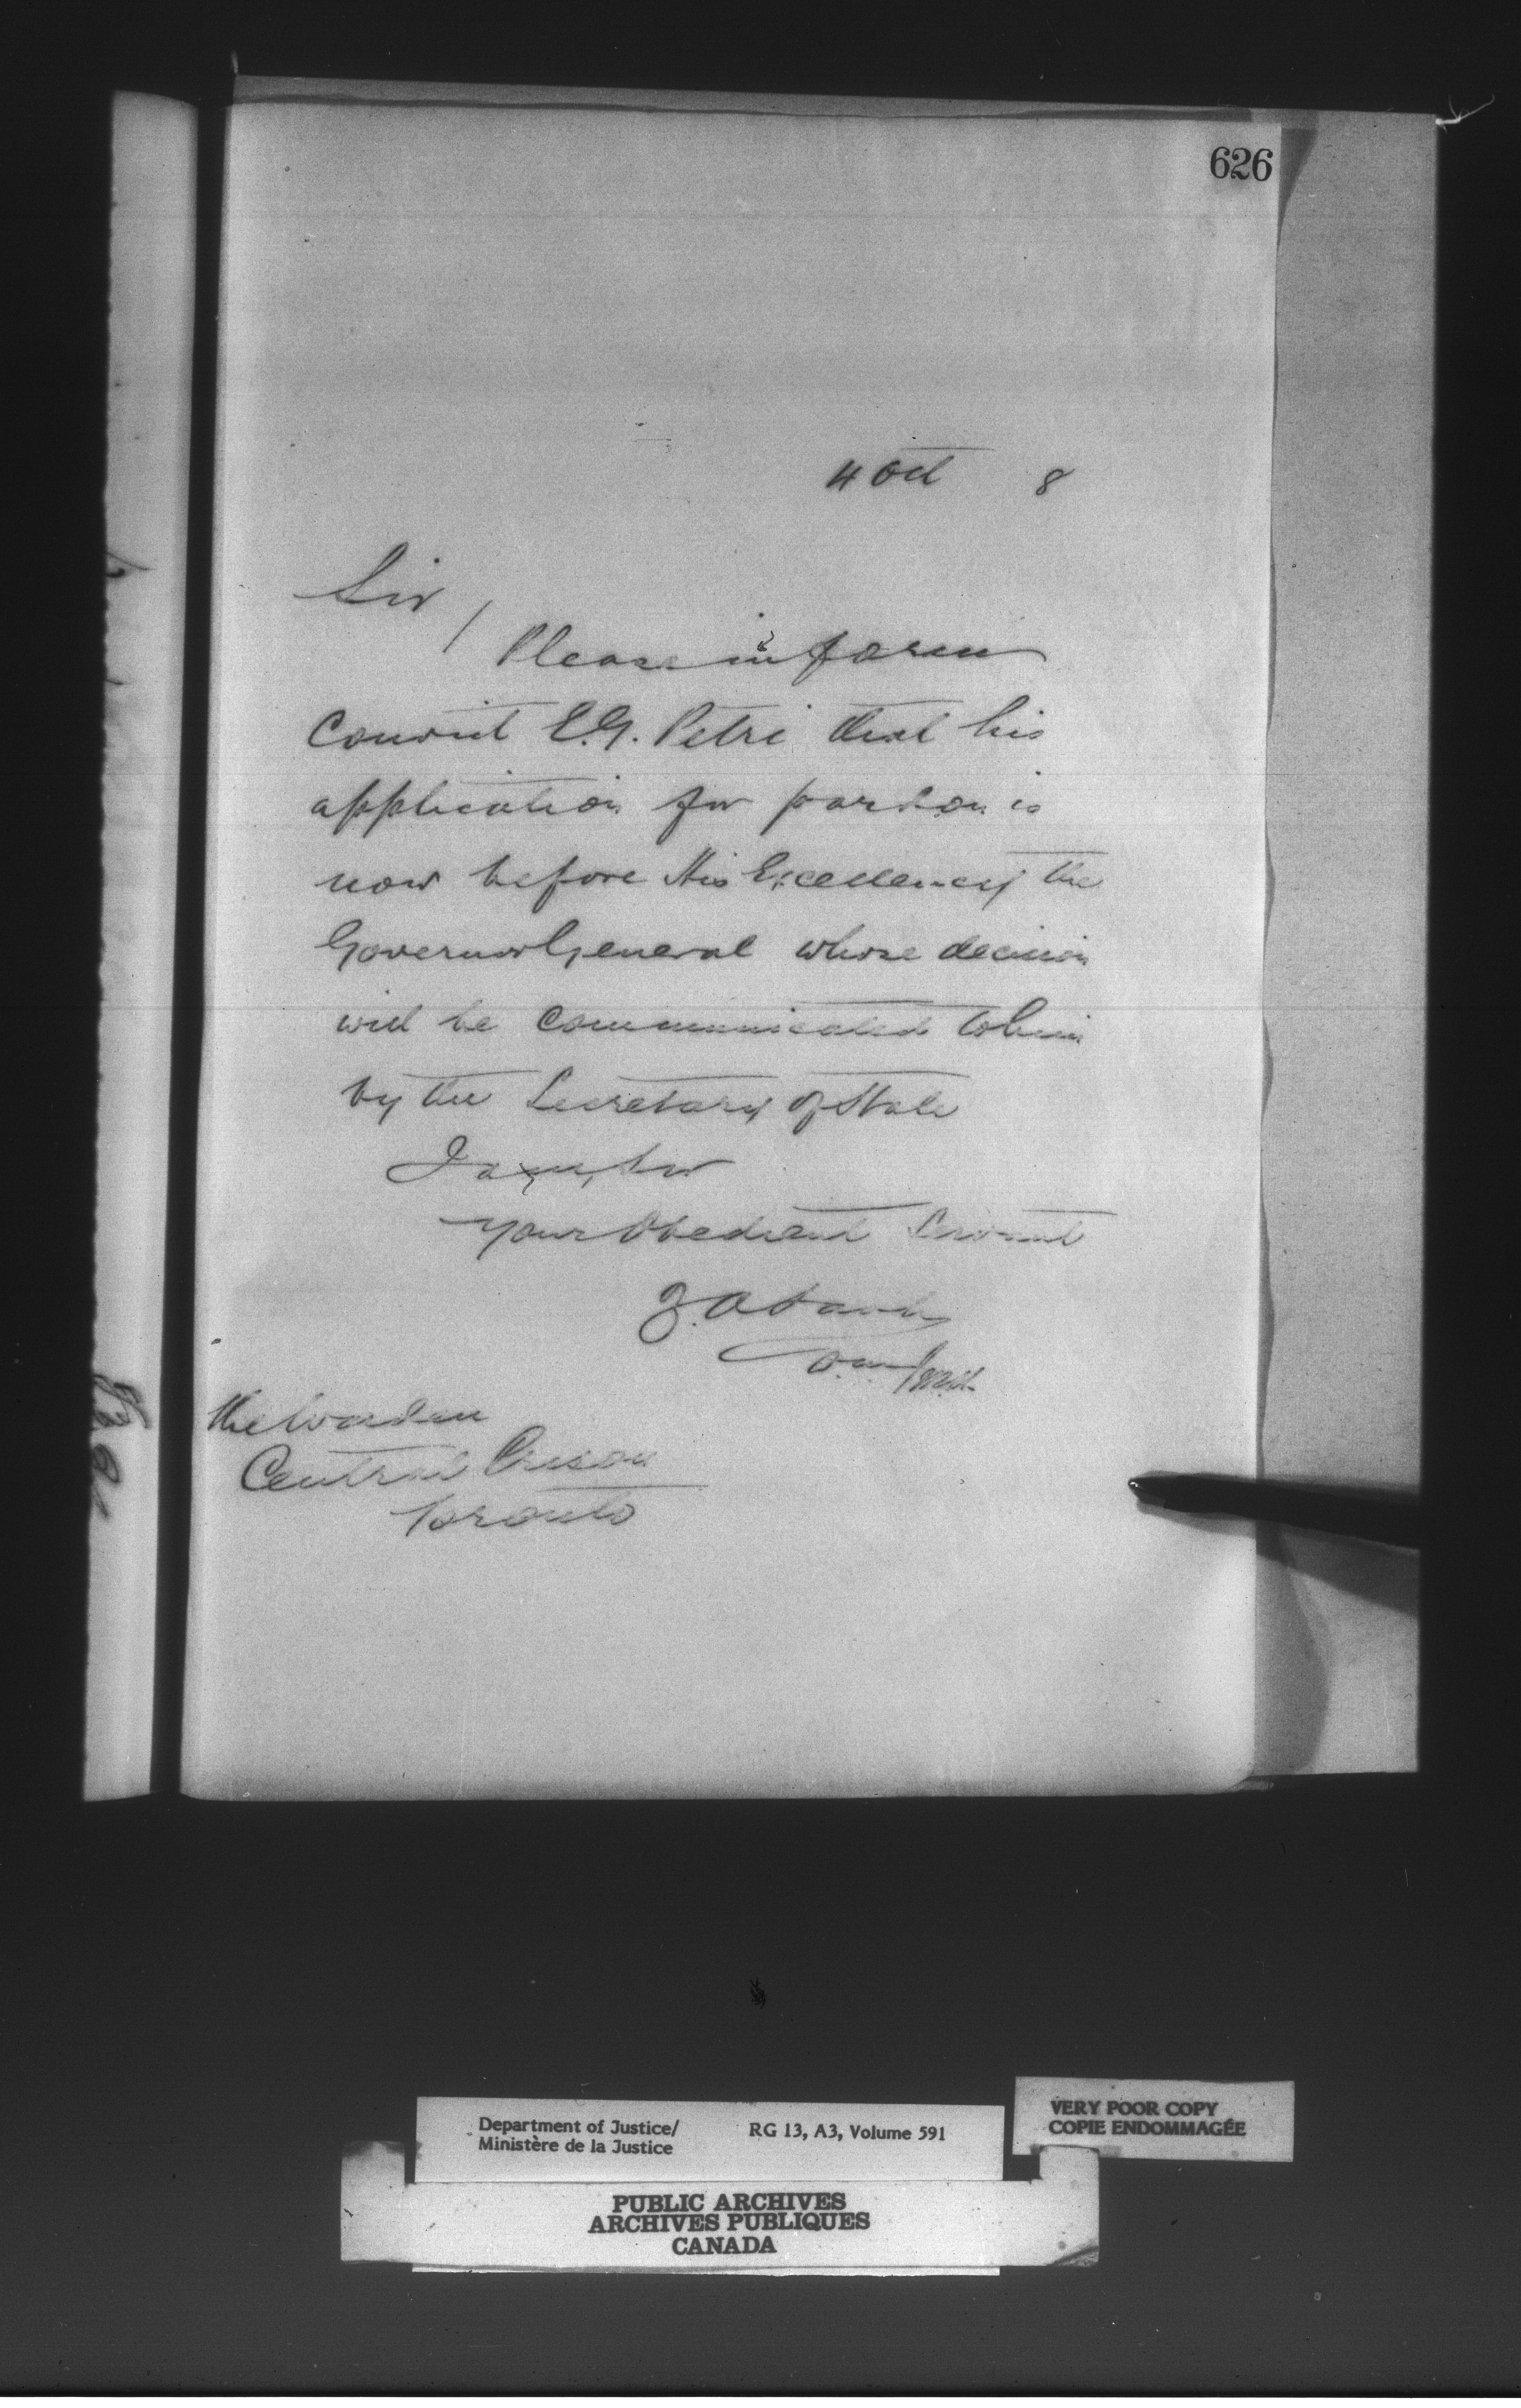 626
4 Oct 8
Sir,
Please inform
Convict E.G. Petri that his
application for pardon is
now before His Excellency the
Governor General whose decision
will be communicated to him
by the Secretary of State
I am, Sir
Your Obedient Servant
The Warden
Central Prison
Toronto
Department of Justice/ RG 13, A3, Volume 591
Ministère de la Justice
VERY POOR COPY
COPIE ENDOMMAGÉE
PUBLIC ARCHIVES
ARCHIVES PUBLIQUES
CANADA